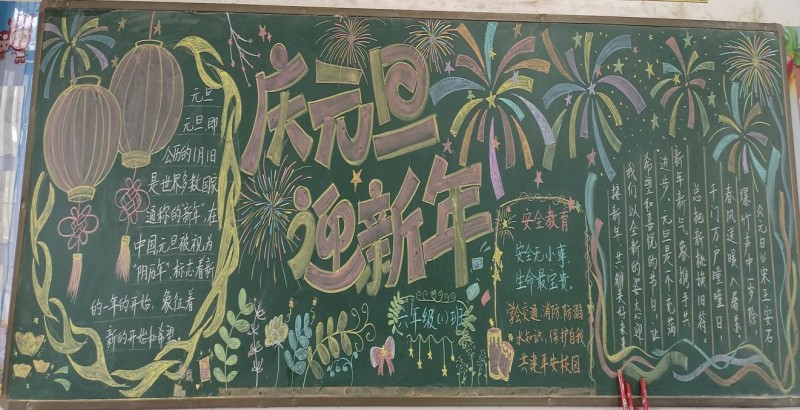 庆元旦
迎新年
元旦
元旦,即
公历的1月1日
是世界多数国家
通称的"新年",在
中国元旦被视为
"阴历年",标志着新
的一年的开始,象征着
新的开始和希望。
六年级(1)班
安全教育
安全无小事,
生命最宝贵。
学交通、消防、防溺
水知识,保护自我
共建平安校园
《元日》宋王安石
爆竹声中一岁除
春风送暖入屠苏
千门万户曈曈日
总把新桃换旧符。
新年新气象携手共
进步,元旦是一个充满
希望和喜悦的节日,让
我们以全新的姿态迎
接新年,共创美好未来